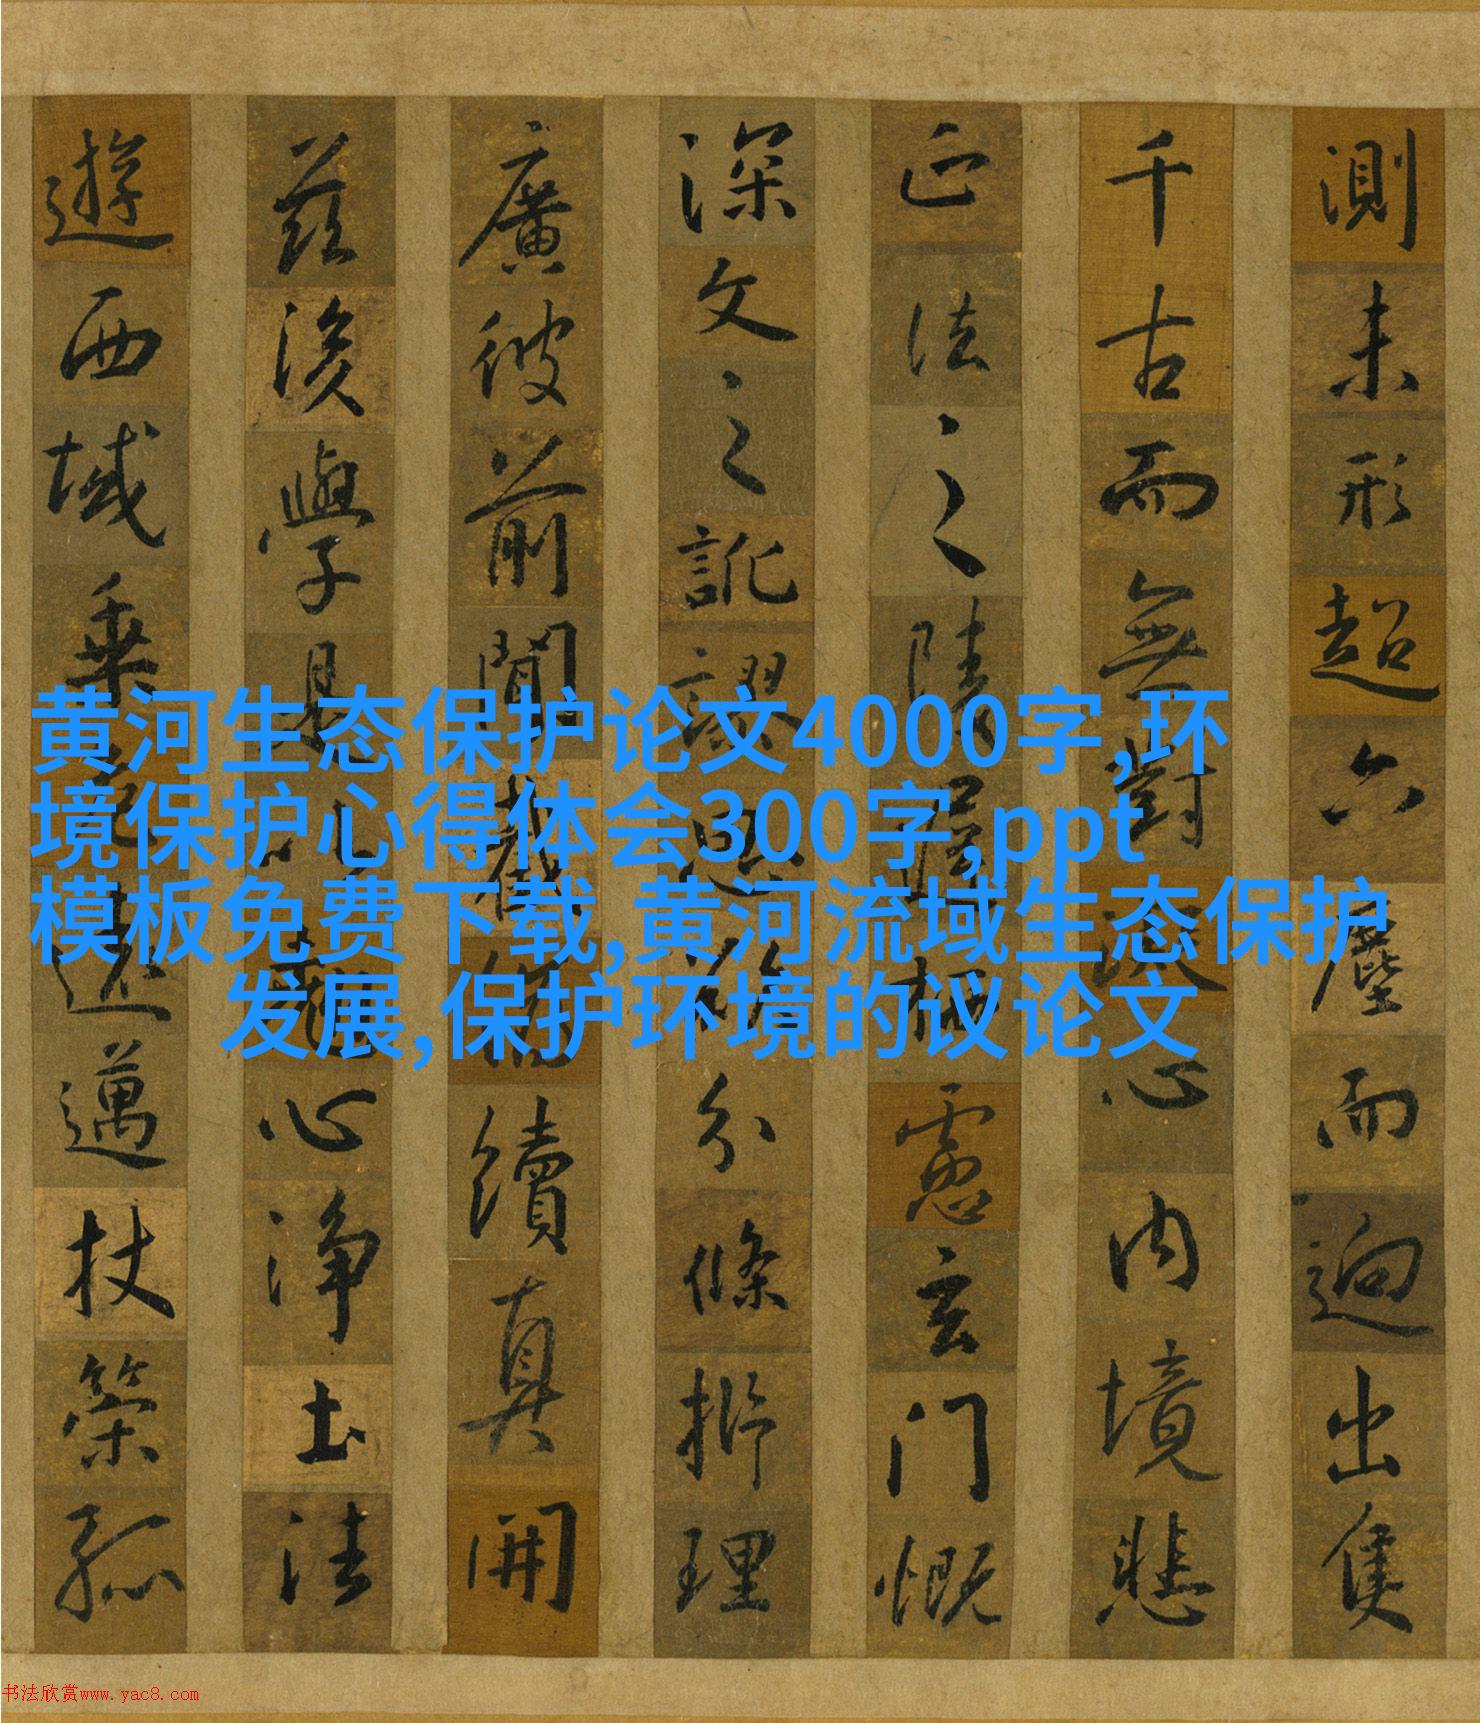 測未形超六塵而迥出隻
千古而無對凝心內境悲
正法之陵遲栖慮玄門慨
深文之訛謬思欲分條析理
廣彼前聞截偽續真開
茲後學是以翹心淨土法
遊西域乘危遠邁杖策孤
黄河生态保护论文4000字,环
境保护心得体会300字,ppt
模板免费下载,黄河流域生态保护
发展,保护环境的议论文
书法欣赏www.yac8.com